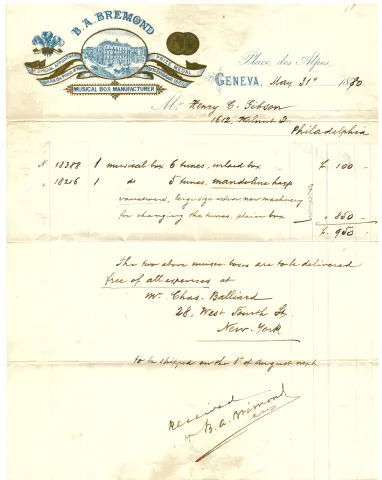 B. A. BREMOND
PRIZE MEDAL
MUSICAL BOX MANUFACTURER
Place des Alpes,
GENEVA, May 31st 1880
Mr Henry C. Gibson
1612, Walnut St
Philadelphia
N 18388 1 musical box 6 tunes, inlaid box £ 100 -
" 18216 1 do 5 tunes, mandoline harp
variations, large size extra, new machinery
for changing the tunes, plain box " 850 -
£ 950 -
The two above music boxes are to be delivered
free of all expenses at
Mr. Chas. Balliard
28, West Fourth St,
New-York
to be shipped on the 1st of August next
Received
B. A. Bremond